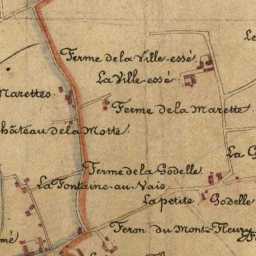 Ferme de la Ville-essé
La Ville-essé
Marettes
Ferme de la Marette
Château de la Motte
Ferme de la Godelle
La Fontaine-au-Vais
La petite Godelle
Ferm du Mont-Fleury